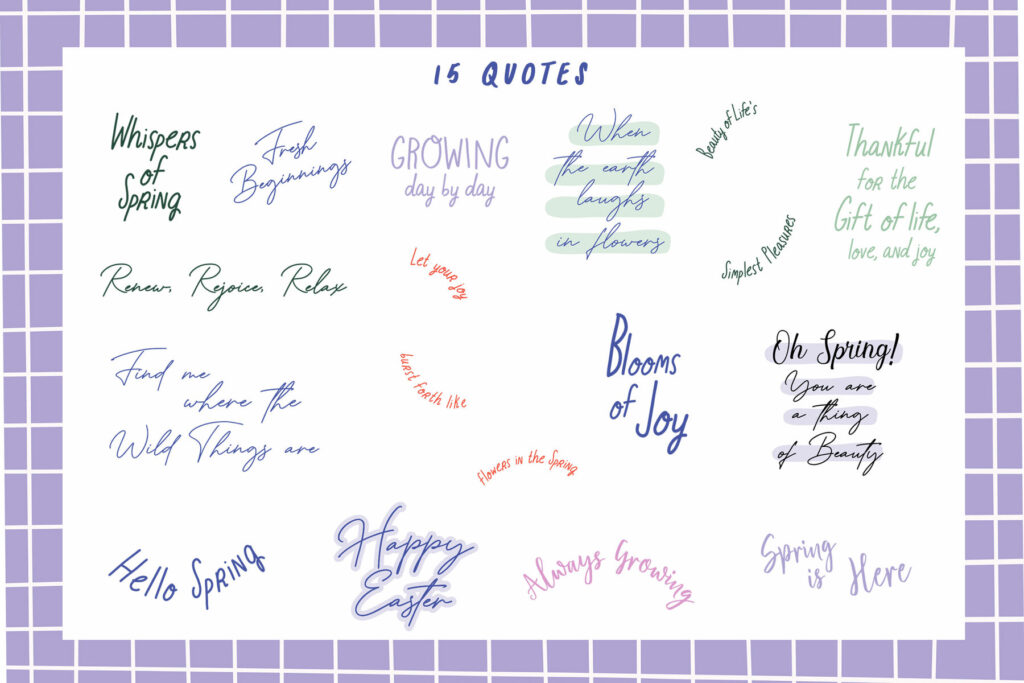 15 QUOTES
Whispers
of
Spring
Fresh
Beginnings
GROWING
day by day
When
the earth
laughs
in flowers
Beauty of Life's
Simplest Pleasures
Thankful
for the
Gift of life,
love, and joy
Renew, Rejoice, Relax
Let your joy
burst forth like
flowers in the Spring
Find me
where the
Wild Things are
Blooms
of Joy
Oh Spring!
You are
a thing
of Beauty
Hello Spring
Happy
Easter
Always Growing
Spring
is Here